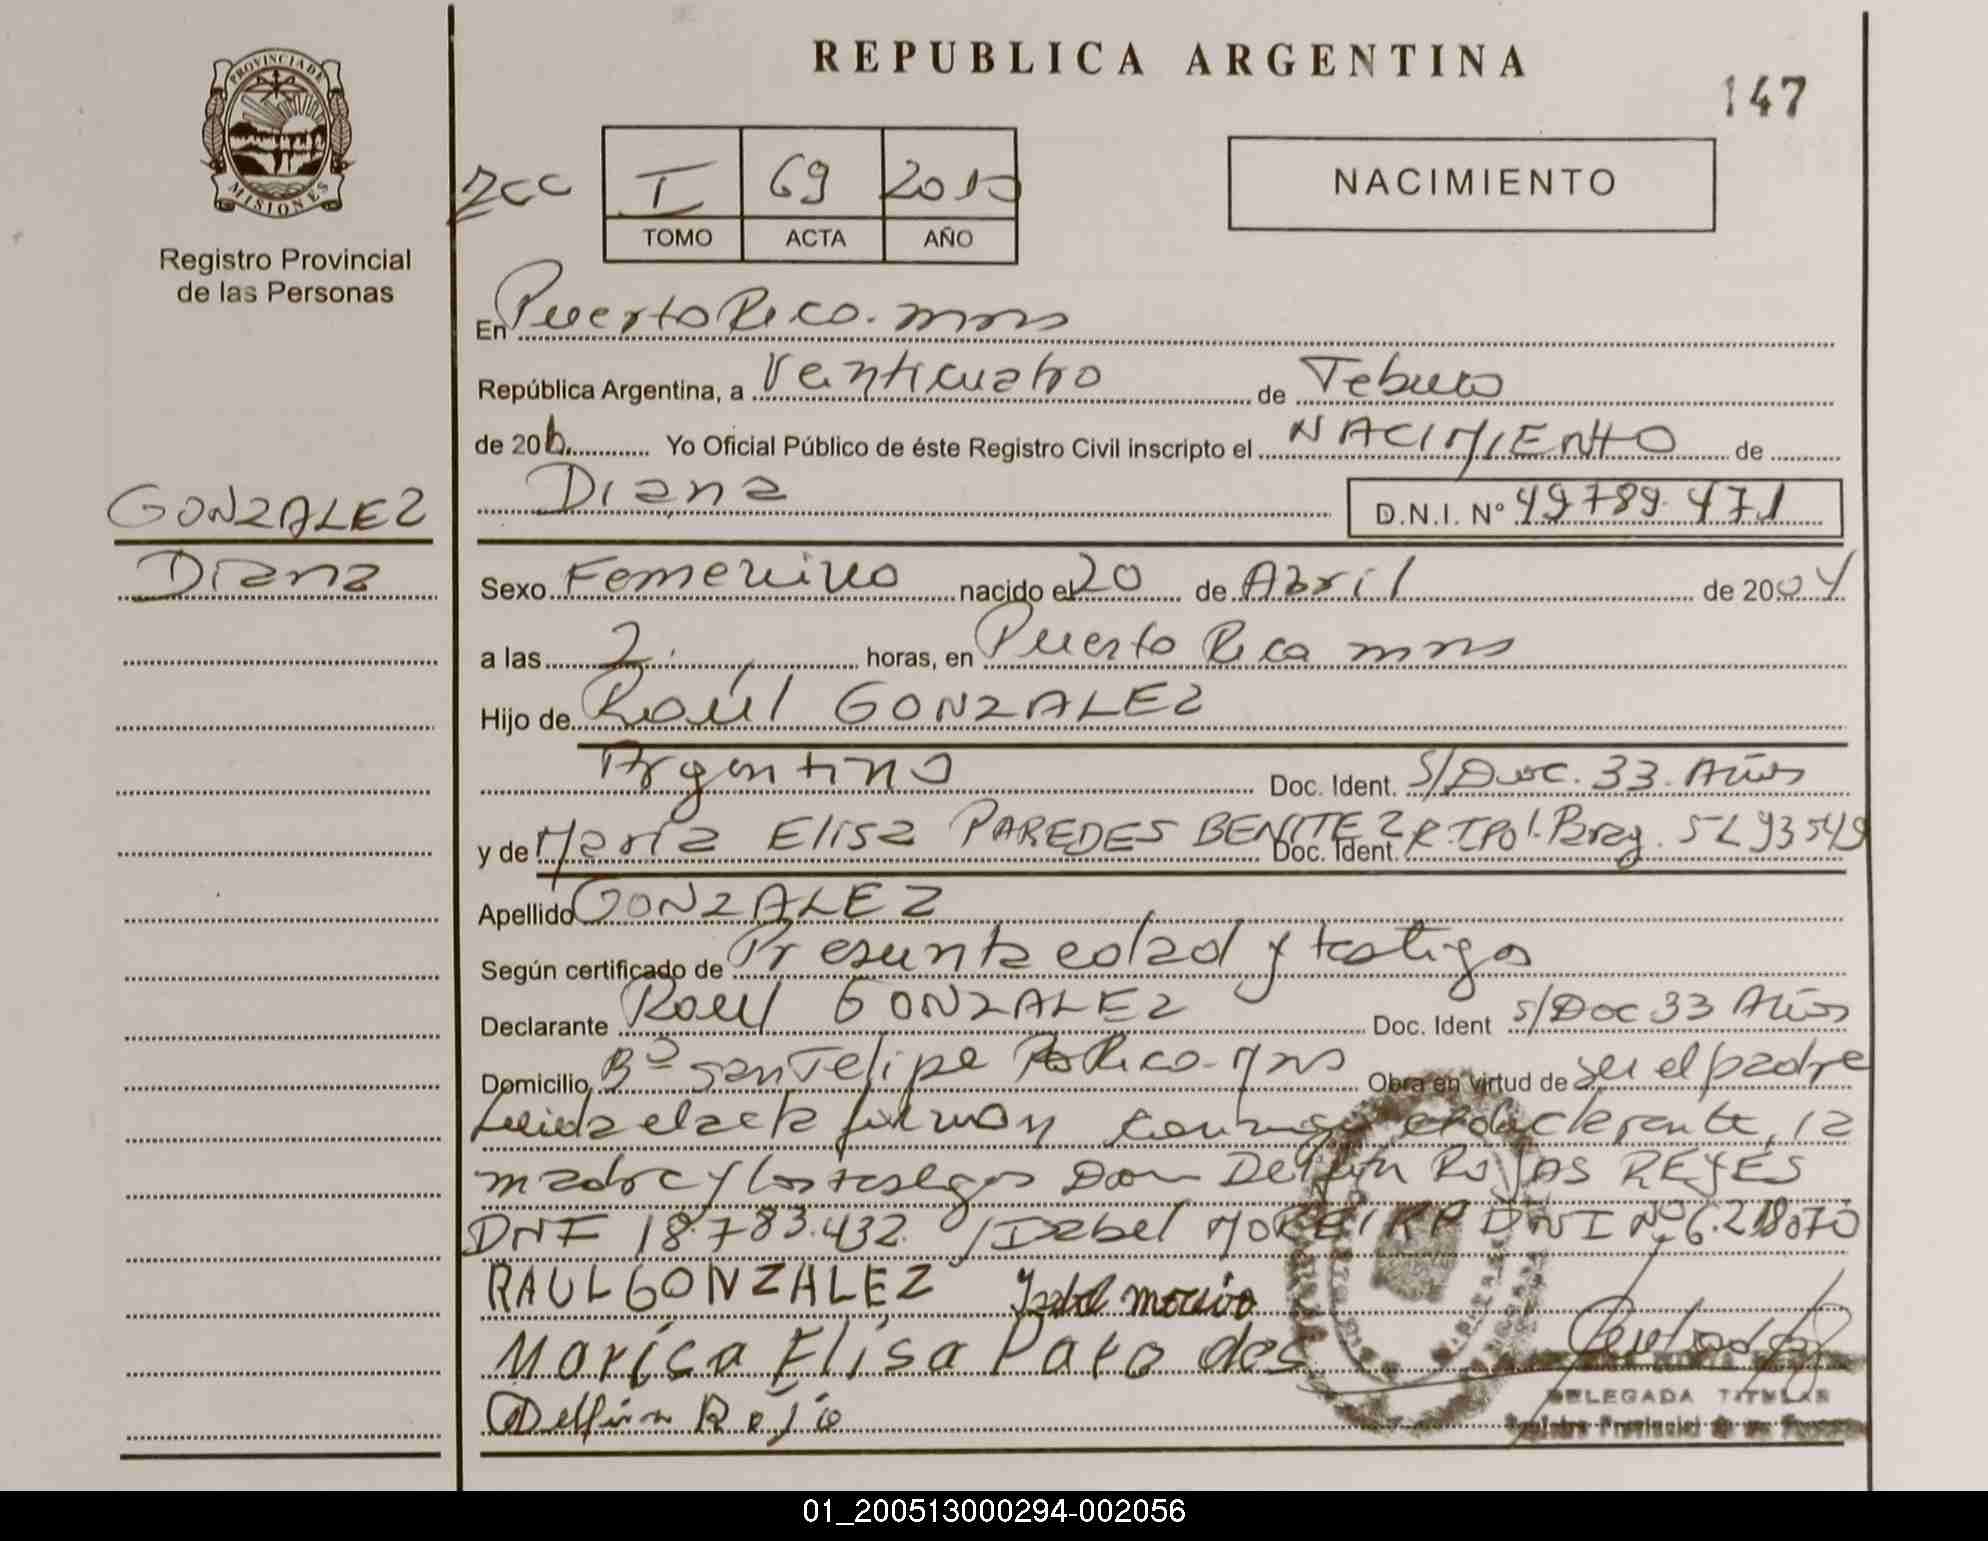 REPUBLICA ARGENTINA
147
PROVINCIA DE
MISIONES
Registro Provincial
de las Personas
I 69 2010
TOMO ACTA AÑO
NACIMIENTO
En Puerto Rico. mns
República Argentina, a Venticuatro de Febrero
de 20 Yo Oficial Público de éste Registro Civil inscripto el NACIMIENTO de
Diana D.N.I. Nº 49789.471
GONZALEZ
Diana
Sexo Femenino nacido el 20 de Abril de 2004
a las 2. horas, en Puerto Rico mns
Hijo de Raúl GONZALEZ
Argentino Doc. Ident. S/Doc. 33. Años
y de María Elisa PAREDES BENITEZ Doc. Ident. Parag.
Apellido GONZALEZ
Según certificado de Presunta edad y testigos
Declarante Raul GONZALEZ Doc. Ident S/Doc 33 Años
Domicilio Bº San Felipe Pto Rico-Mns Obra en virtud de ser el padre
Leida el acta firman conmigo el declarante, la
madre y los testigos Don Delfin ROJAS REYES
DNI 18.783.432. MOREIRA DNI Nº
RAUL GONZALEZ
Elisa
Delfin
DELEGADA TITULAR
Registro Provincial de las Personas
01_200513000294-002056